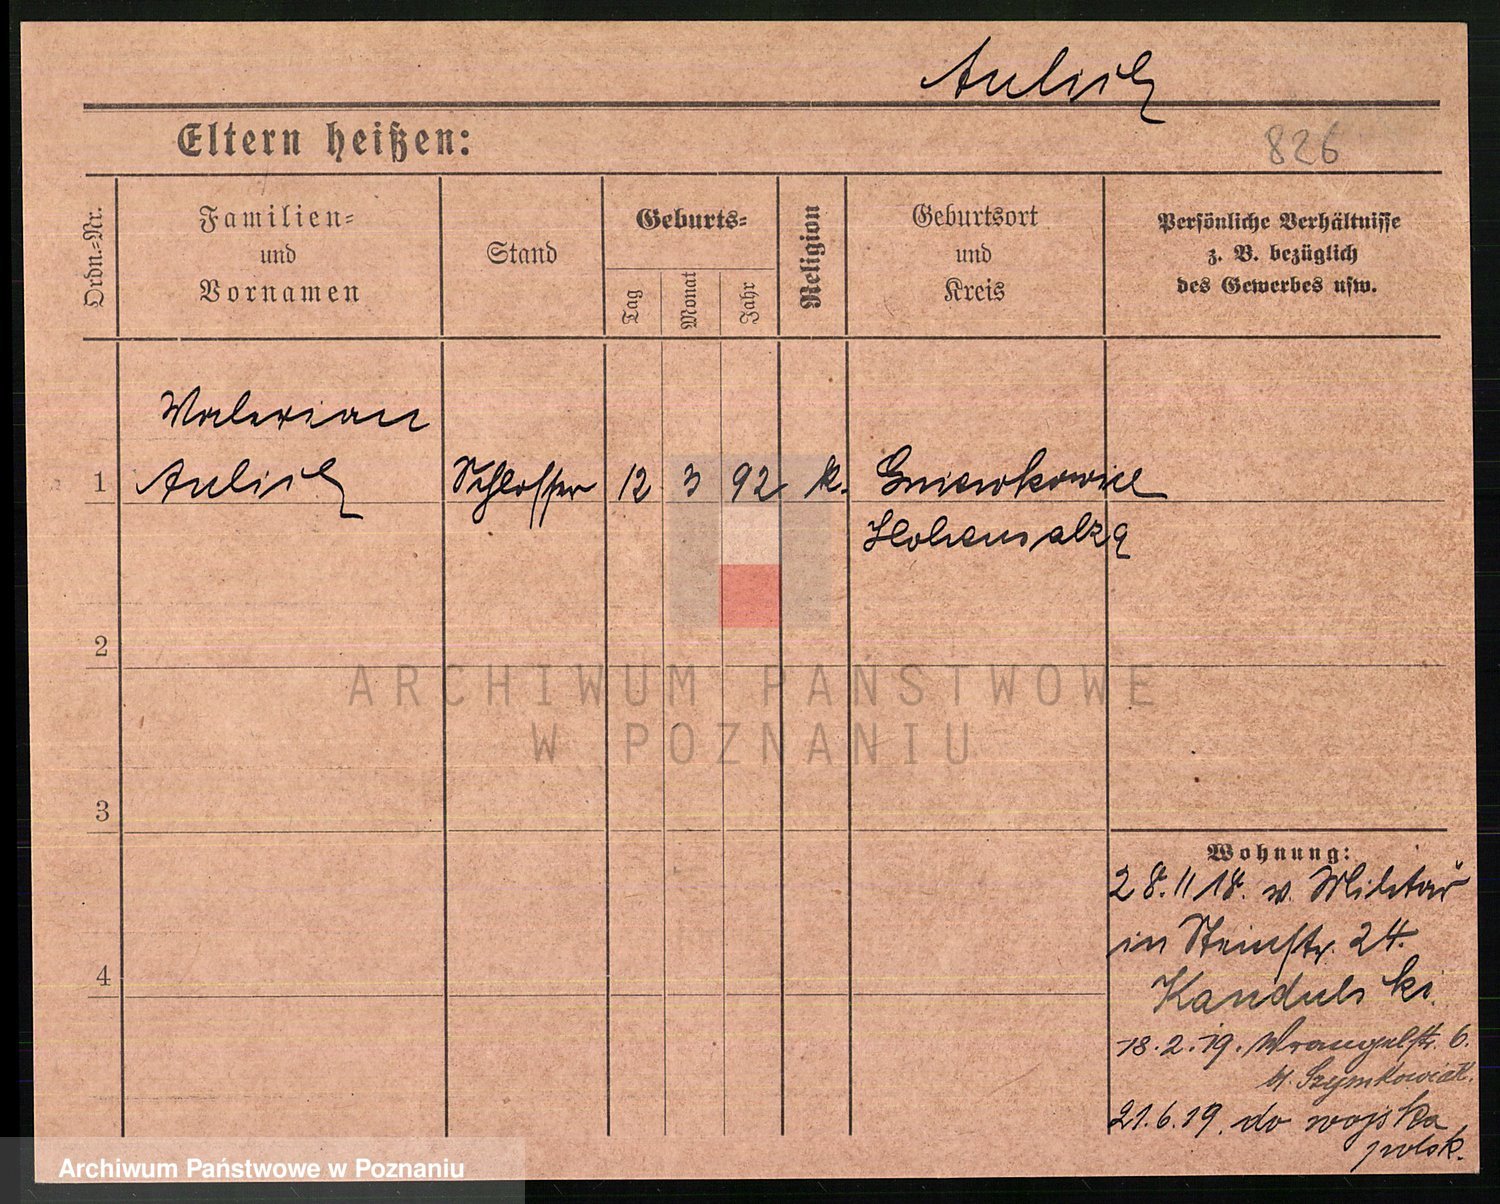 Aulich
Eltern heißen:
826
Ordn.=Nr.
Familien=
und
Vornamen
Stand
Geburts=
Tag
Monat
Jahr
Religion
Geburtsort
und
Kreis
Persönliche Verhältnisse
z. B. bezüglich
des Gewerbes usw.
Valerian
1 Aulich Schlosser 12 3 92 k. Gniewkowice
Hohensalza
2
3
4
Wohnung:
28. 11 18. v. Militär
in Steinstr. 24.
Kandulski.
18. 2. 19. Wrangelstr. 6.
Szymkowiak.
21. 6. 19. do wojska
polsk.
ARCHIWUM PAŃSTWOWE
W POZNANIU
Archiwum Państwowe w Poznaniu